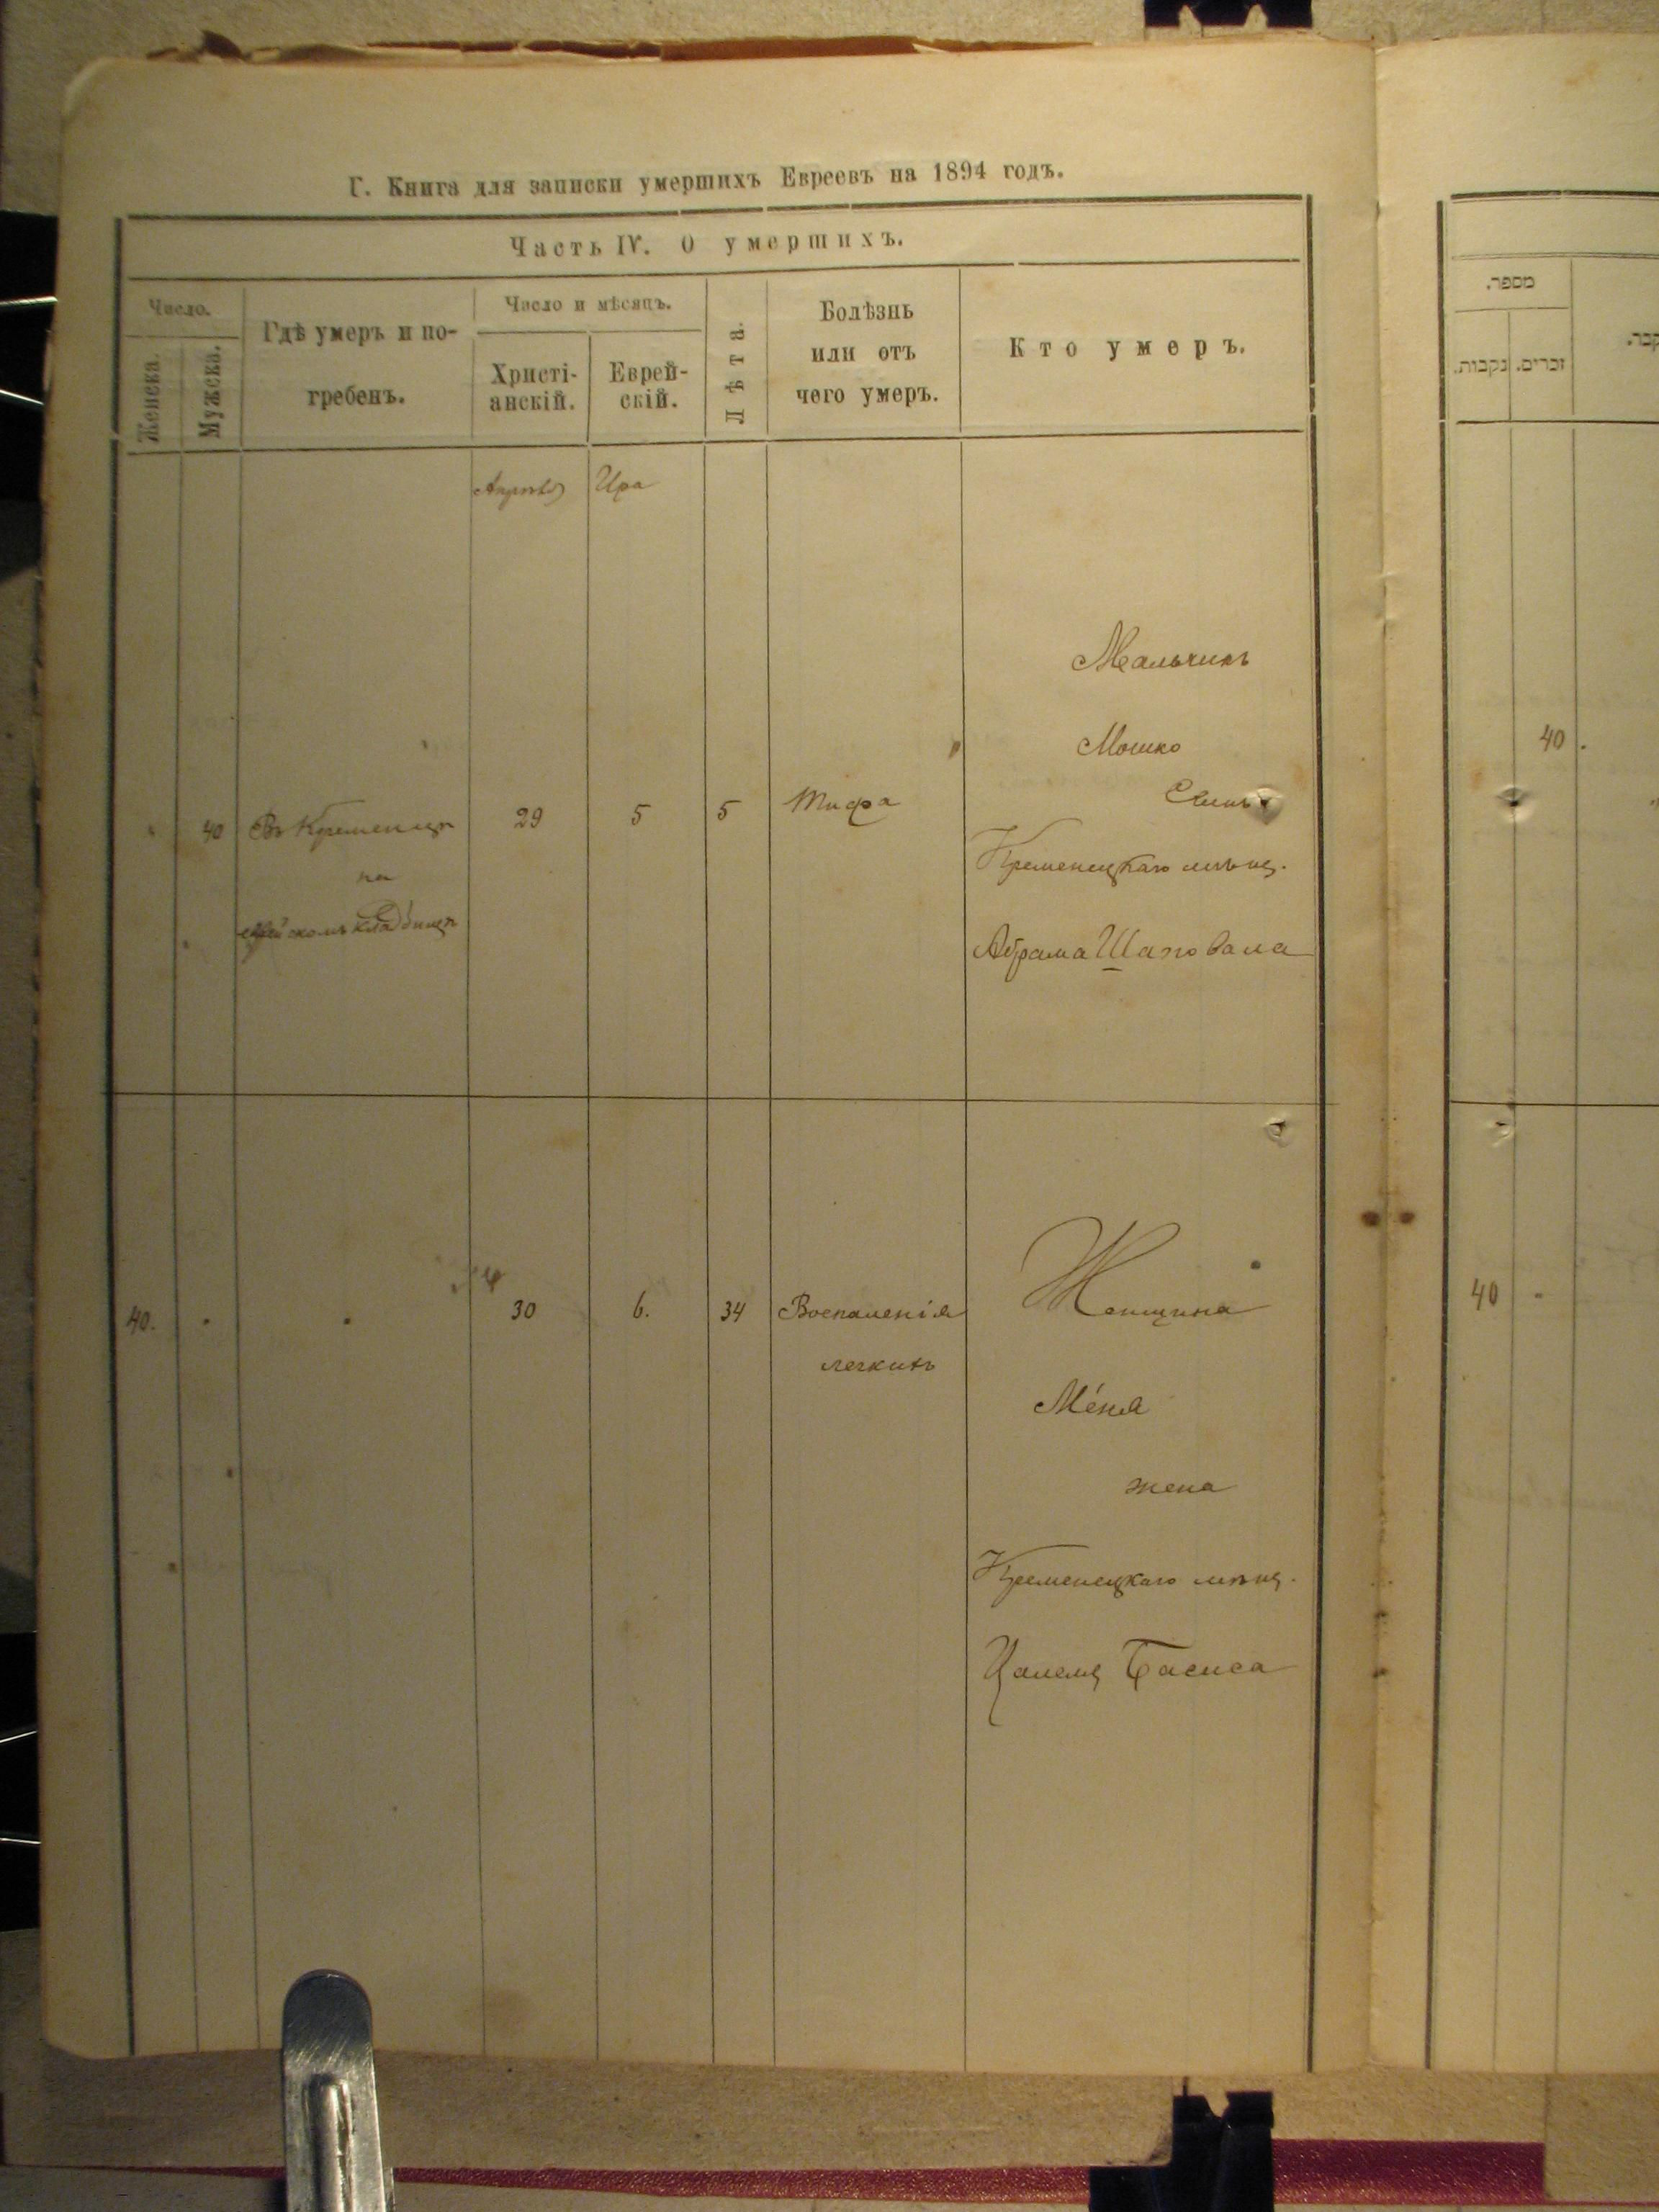 Г. Книга для записки умершихъ Евреевъ на 1894 годъ.
Часть IV. О умершихъ.
Число.
Женска.
Мужска.
Гдѣ умеръ и по-
гребенъ.
Число и мѣсяцъ.
Христі-
анскій.
Еврей-
скій.
Лѣта.
Болѣзнь
или отъ
чего умеръ.
Кто умеръ.
מספר.
נקבות.
זכרים.
Апрѣля
Ира
Мальчикъ
Мошко
Сынъ
40 Въ Кременцѣ 29 5 5 Тифа
на
Кременецкаго мѣщ.
еврейскомъ кладбищѣ
Абрама Шаповала
40 .
Женщина
40. 30 6. 34 Воспаленія
легкихъ
Меня
жена
Кременецкаго мѣщ.
Басиса
40